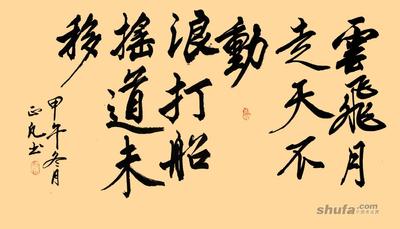 雲飛月
走天不
動
浪打船
搖道未
移
甲午冬月
正凡书
shufa.com